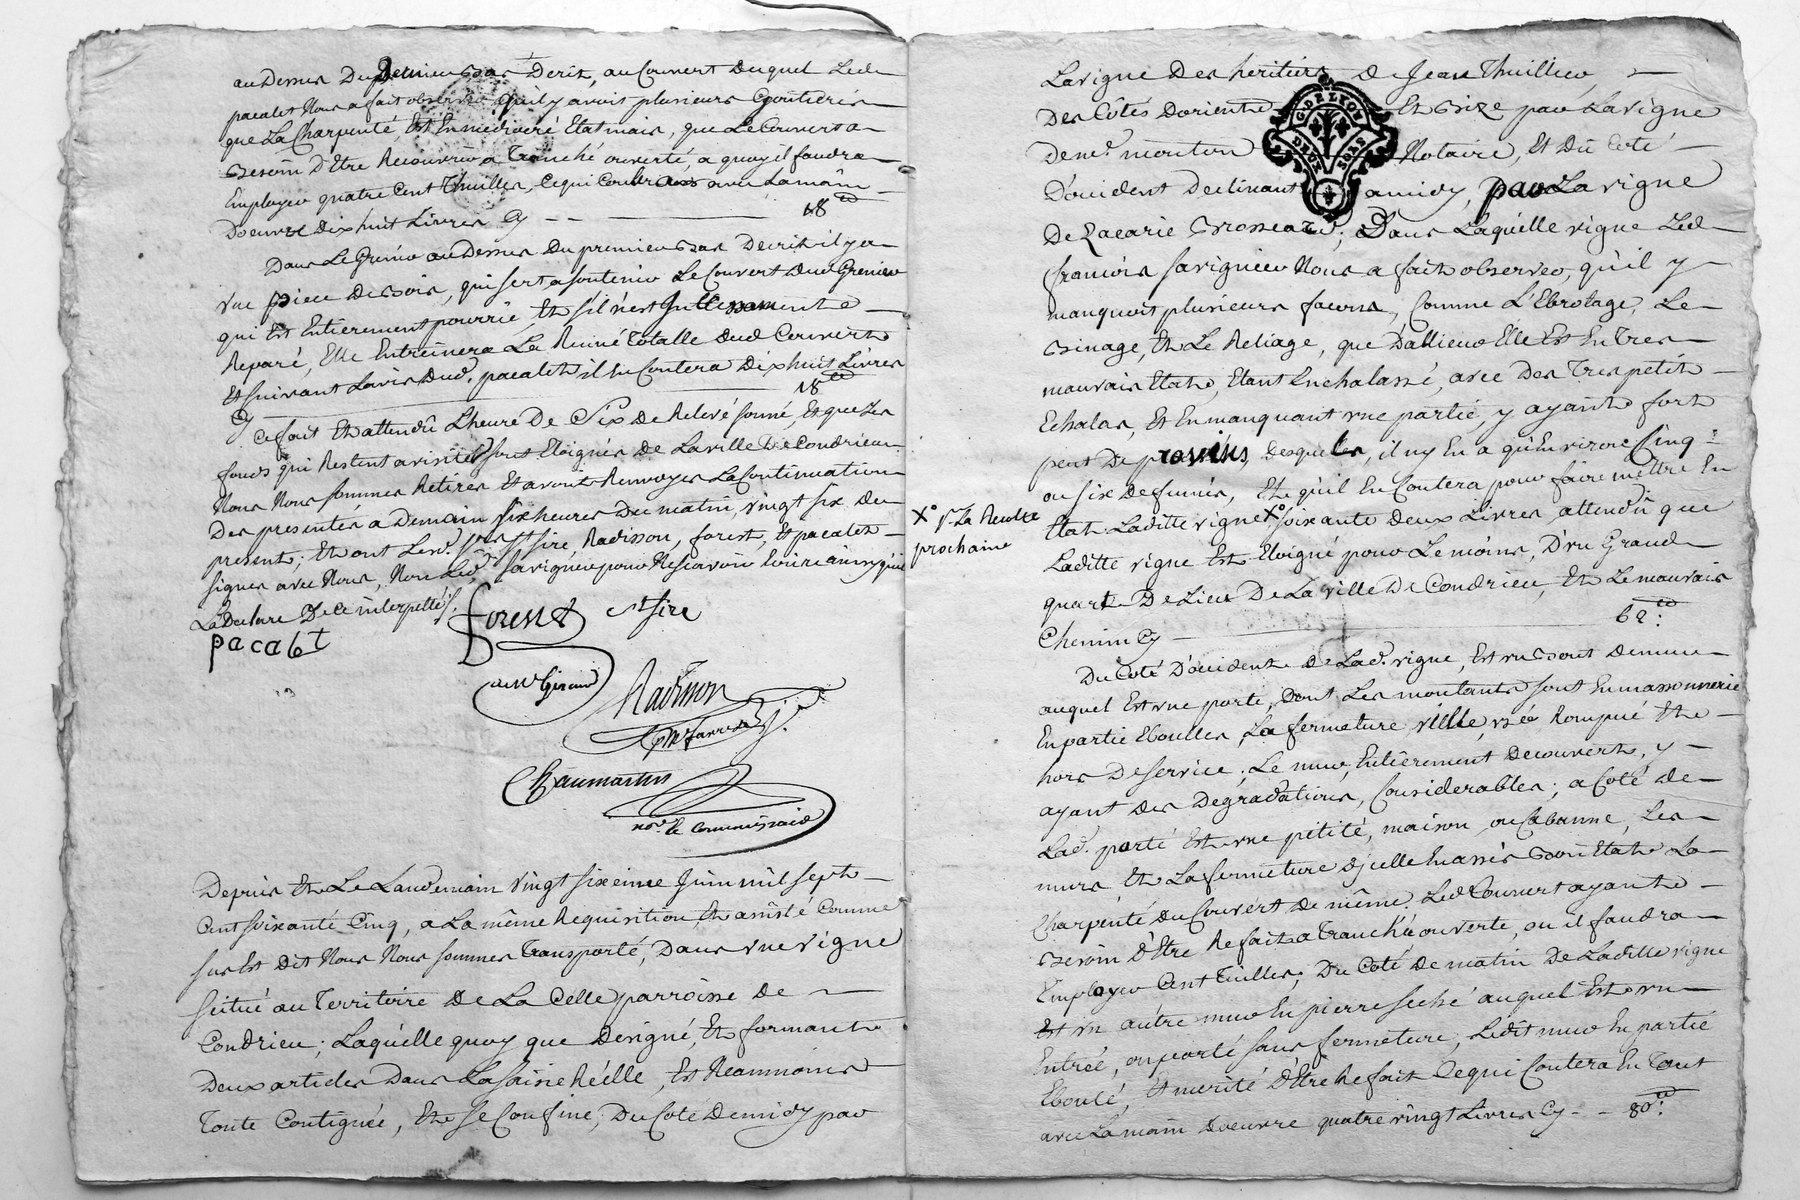 au Dessus Du premier Bas Decrit, au Couvert Duquel Led.
pacalet Nous a fait observer qu'il y avoit plusieurs Goutieres
que La Charpente Est En mediocre Etat mais, que Le Couvert a
Besoin D'Etre Recouvert a Tranché ouverte, a quoy il faudra
Employer quatre Cent Thuilles, Ce qui Coutera avec La main
Doeuvre Dix huit Livres Cy 18ᵗᵗ
Dans Le Grenier au Dessus Du premier Bas Decrit il y a
une piece De Bois, qui sert a soutenir Le Couvert Dud Grenier
qui Est Entierement pourrie, Et s'il n'est Incessamment
Reparé, Elle Entreinera La Ruine Totalle Dud Couvert
Et suivant L'avis Dud. pacalet il En Coutera Dix huit Livres
Cy 18ᵗᵗ
Ce fait Et attendû L'heure De Six De Relevé sonné, Et que Les
fonds qui Restent a visiter sont Eloignés De La ville De Condrieu
Nous Nous sommes Retirés Et avons Renvoyés La Continuation
Des presentes a Demain six heures Du matin, vingt six Du
present; Et ont Lesd. Srs St sire, Radisson, forest, Et pacalet
signés avec Nous, Non Led. Savignieu pour Ne sçavoir Ecrire ainsy qu'il
La Declaré De Ce interpellé.
forest St sire
pacalet
Radisson
Chaumartin
nore. le Commissaire
Depuis Et Le Landemain vingt sixieme Juin mil sept
Cent soixante Cinq, a La même Requisition, Et assisté Comme
sus Est Dit Nous Nous sommes Transporté, Dans une vigne
scitué au Territoire De La Celle parroisse De
Condrieu; Laquelle quoy que Designé, Et formant
Deux articles Dans La saisie Réelle, Est Neanmoins
Toute Contiguée, Et se Confine; Du Coté De midy par
La vigne Des heritiers De Jean Thuillier
Des Côtés D'orient Et Bize par La vigne
De me. mouton Notaire, Et Du Coté
D'occident Declinant a midy, par La vigne
De Zacarie Brossard; Dans Laquelle vigne Led.
françois Savignieu Nous a fait observer, qu'il y
manquoit plusieurs façons, Comme L'Ebrotage, Le
Binage, Et Le Reliage, que D'allieur Elle Est En Tres
mauvais Etat, Etant Enchalassé, avec Des Tres petit
Echalas, Et En manquant une partie, y ayant fort
peut De provins, Desquels, il n'y En a qu'Environ Cinq
ou six De fumés, Et qu'il En Coutera pour faire mettre En
Xᵒ pr. La Recolte
prochaine
Etat Laditte vigne Xᵒ soixante Deux Livres, attendû que
Laditte vigne Est Eloigné pour Le moins, D'un Grand
quart De Lieu De La ville De Condrieu, Et Le mauvais
Chemin Cy 62ᵗᵗ.
Du Coté D'occident De Lad. vigne, Est un Bout De mur
auquel Est une porte, Dont Les montants sont En massonnerie
En partie Eboulés, La fermeture viille, usée Rompue Et
hors De service; Le mur, Entierement Decouvert, y
ayant Des Degradations, Considerables; a Coté de
Lad. porte Est une petite, maison, ou Cabanne, Les
murs Et La fermeture D'jcelle En assés Bon Etat La
Charpente Du Couvert De même. Led Couvert ayant
Besoin D'Etre Refait a Tranché ouverte, ou il faudra
Employer Cent Tuilles; Du Coté De matin De Laditte vigne
Est un autre mur En pierre seche auquel Est un
Entrée, ou porte sans fermeture, Ledit mur En partie
Eboulé, Et merité D'Etre Refait Ce qui Coutera En Tout
avec La main Doeuvre quatre vingt Livres Cy 80ᵗᵗ.